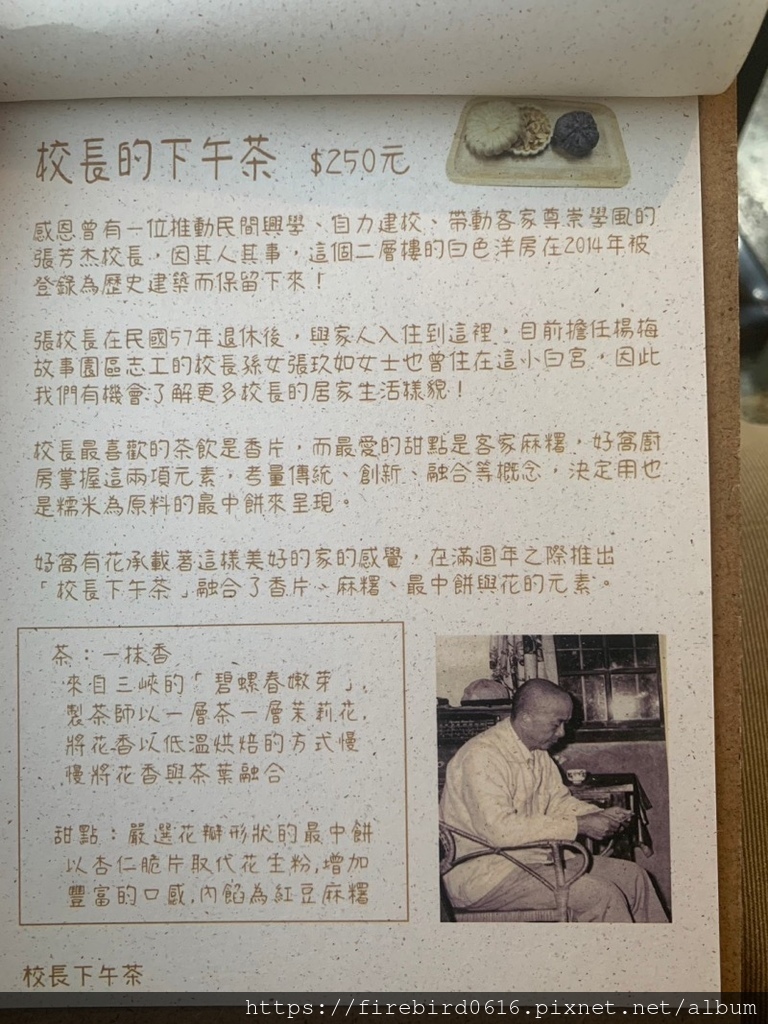 校長的下午茶 $250元
感恩曾有一位推動民間興學、自力建校、帶動客家尊崇學風的
張芳杰校長，因其人其事，這個二層樓的白色洋房在2014年被
登錄為歷史建築而保留下來！
張校長在民國57年退休後，與家人入住到這裡，目前擔任楊梅
故事園區志工的校長孫女張玖如女士也曾住在這小白宮，因此
我們有機會了解更多校長的居家生活樣貌！
校長最喜歡的茶飲是香片，而最愛的甜點是客家麻糬，好窩廚
房掌握這兩項元素，考量傳統、創新、融合等概念，決定用也
是糯米為原料的最中餅來呈現。
好窩有花承載著這樣美好的家的感覺，在滿週年之際推出
「校長下午茶」融合了香片、麻糬、最中餅與花的元素。
茶：一抹香
來自三峽的「碧螺春嫩芽」，
製茶師以一層茶一層茉莉花，
將花香以低溫烘焙的方式慢
慢將花香與茶葉融合
甜點：嚴選花瓣形狀的最中餅
以杏仁脆片取代花生粉，增加
豐富的口感，內餡為紅豆麻糬
校長下午茶
https://firebird0616.pixnet.net/album